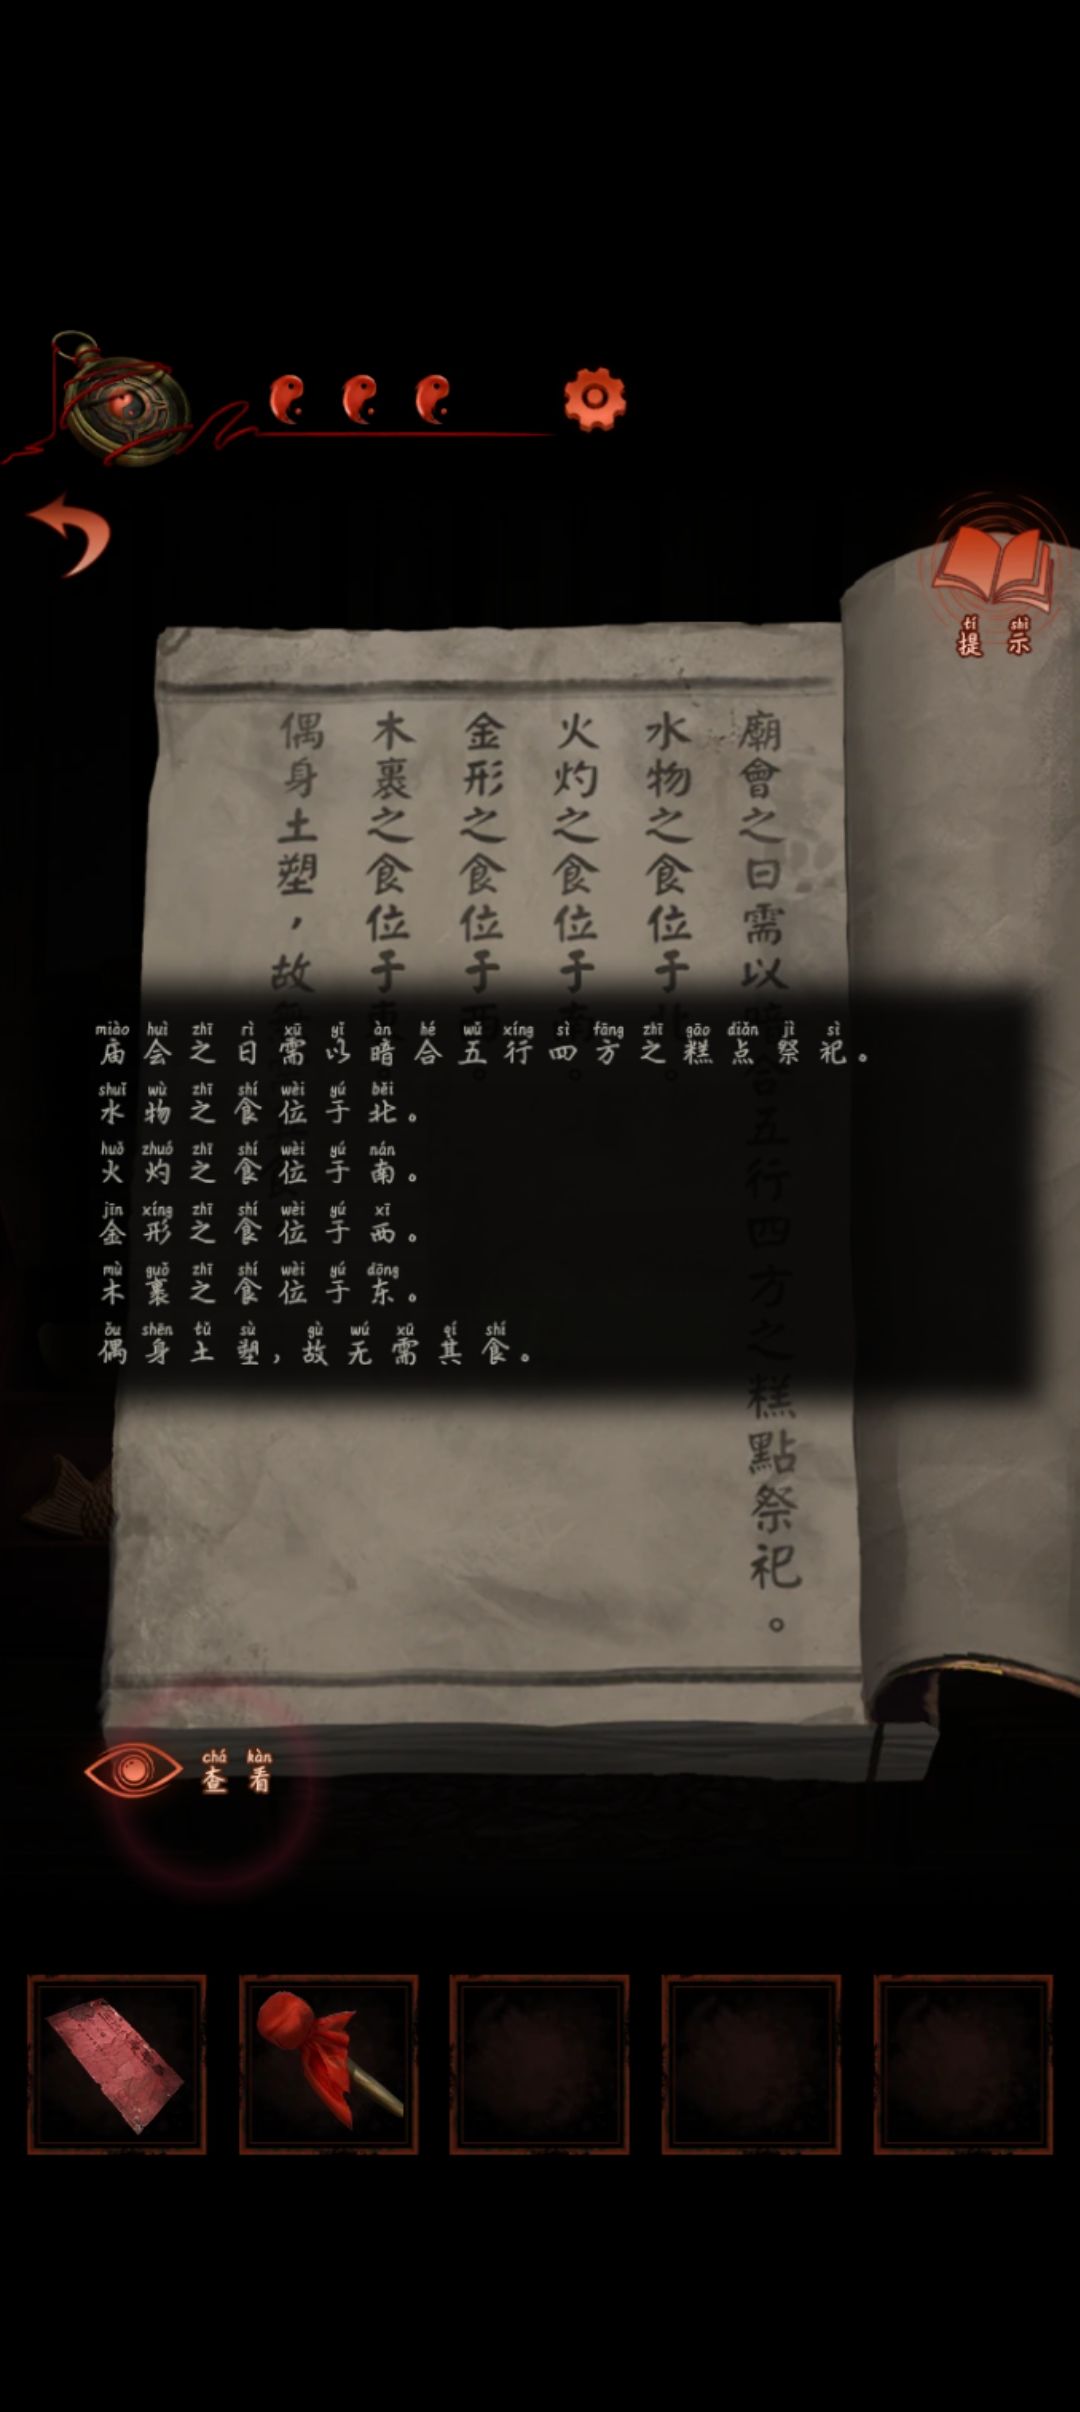 提示
tí shì
廟會之日需以暗合五行四方之糕點祭祀。
水物之食位于北。
火灼之食位于南。
金形之食位于西。
木裹之食位于東
偶身土塑，故無需其食
miào huì zhī rì xū yǐ àn hé wǔ xíng sì fāng zhī gāo diǎn jì sì
庙会之日需以暗合五行四方之糕点祭祀。
shuǐ wù zhī shí wèi yú běi
水物之食位于北。
huǒ zhuó zhī shí wèi yú nán
火灼之食位于南。
jīn xíng zhī shí wèi yú xī
金形之食位于西。
mù guǒ zhī shí wèi yú dōng
木裹之食位于东。
ǒu shēn tǔ sù gù wú xū qí shí
偶身土塑，故无需其食。
chá kàn
查看